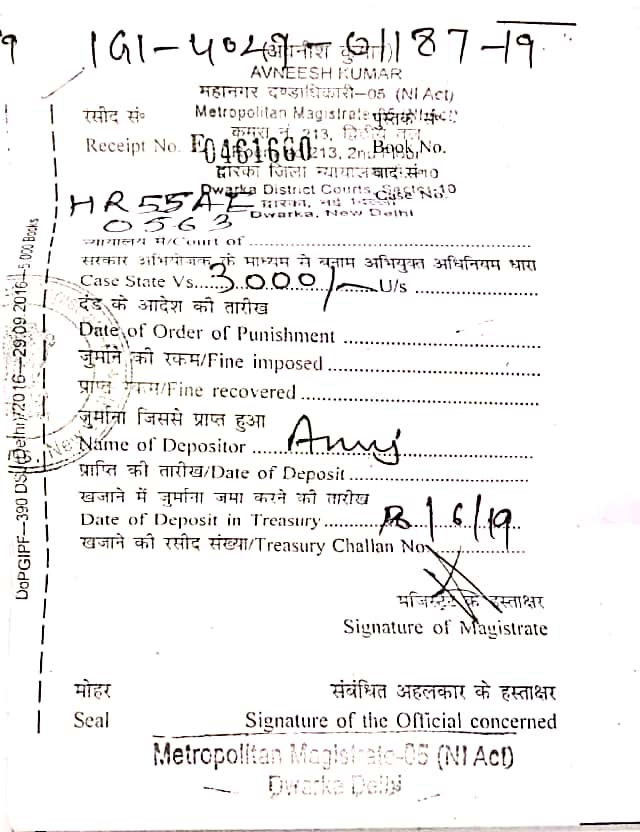 9 IGI-4029-01187-19
(अवनीश कुमार)
AVNEESH KUMAR
महानगर दण्डाधिकारी-05 (NI Act)
रसीद सं॰ Metropolitan Magistrate पुस्तक सं॰
कमरा नं. 213, द्वितीय तल
Receipt No. F0461660 213, 2nd Floor Book No.
द्वारका जिला न्यायालय वाद सं॰ 10
Dwarka District Courts, Sector-10 Case No.
HR55AE द्वारका, नई
0563 Dwarka, New Delhi
न्यायालय में/Court of
सरकार अभियोजक के माध्यम से बनाम अभियुक्त अधिनियम धारा
Case State Vs. 3000/- U/s
दंड के आदेश की तारीख
Date of Order of Punishment
जुर्माने की रकम/Fine imposed
प्राप्त रकम/Fine recovered
जुर्माना जिससे प्राप्त हुआ
Name of Depositor Anuj
प्राप्ति की तारीख/Date of Deposit
खजाने में जुर्माना जमा करने की तारीख
Date of Deposit in Treasury /6/19
खजाने की रसीद संख्या/Treasury Challan No.
मजिस्ट्रेट के हस्ताक्षर
Signature of Magistrate
मोहर संबंधित अहलकार के हस्ताक्षर
Seal Signature of the Official concerned
Metropolitan Magistrate-05 (NI Act)
Dwarka Delhi
DoPGIPF—390 DSJ (Delhi)/2016—29.09.2016—5 000 Books